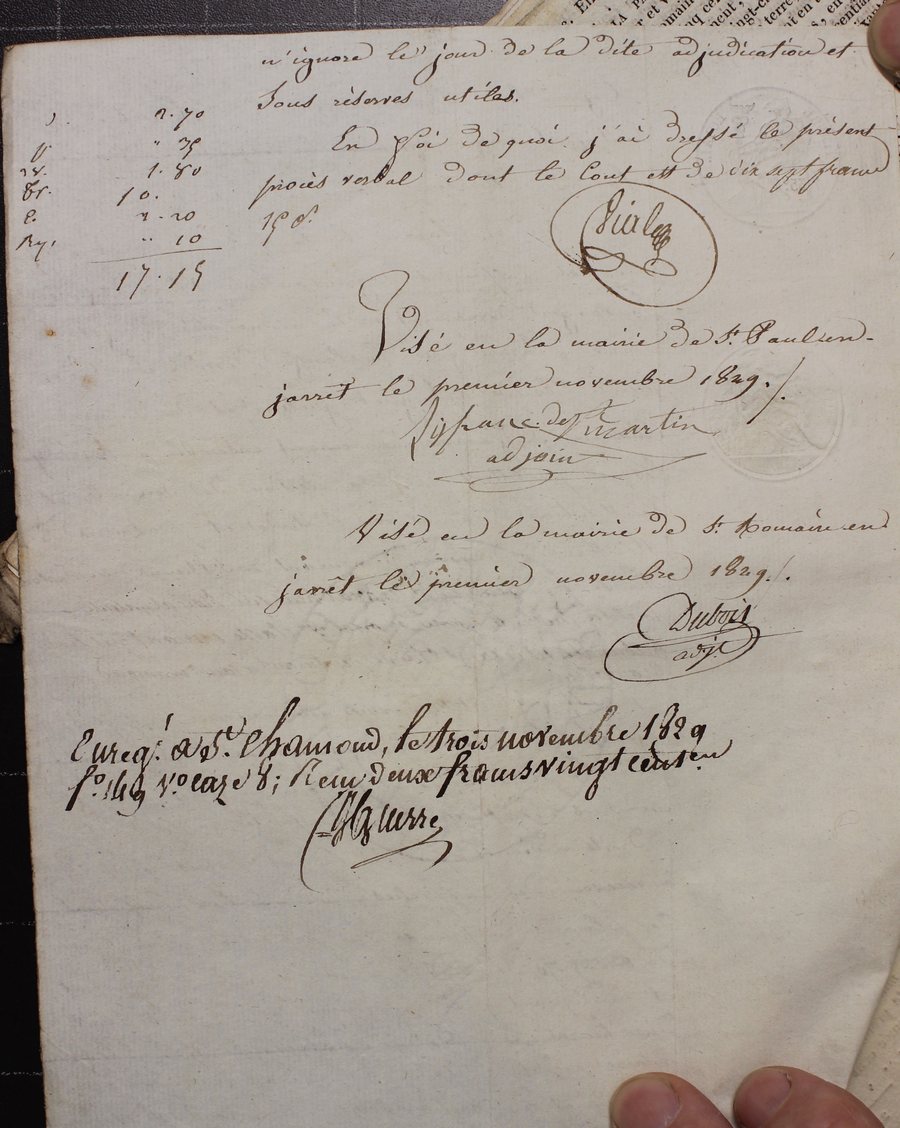 n'ignore le jour de la dite adjudication et
sous réserves utiles.
En foi de quoi j'ai dressé le présent
procès verbal dont le cout est de dix sept francs
15 c.
2.70
" 35
1.80
10.
2.20
" 10
17.15
Vial
Visé en la mairie de St. Paul en
jarrêt le premier novembre 1829./.
de St martin
adjoin
Visé en la mairie de St. Romain en
jarrêt le premier novembre 1829./.
Dubois
adj.
Enreg. a St. Chamond, le trois novembre 1829
fo. 149 vo. case 8; Recu deux francs vingt cent.